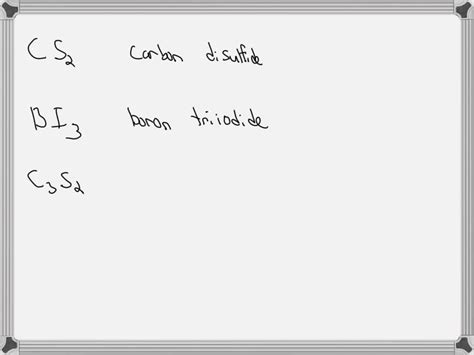 CS₂ carbon disulfide
BI₃ boron triiodide
C₃S₂